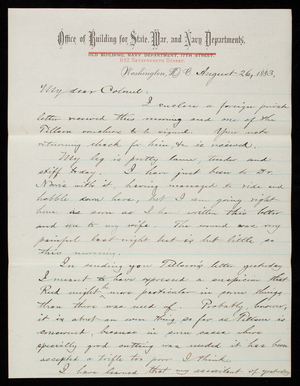 Office of Building for State, War, and Navy Departments,
OLD BUILDING, NAVY DEPARTMENT, 17TH STREET,
Washington, D. C. August 26, 1883.
My dear Colonel:
I enclose a foreign private
letter received this morning and one of the
vouchers to be signed. You
returning check for him &c is received.
My leg is pretty lame, tender and
stiff today. I have just been to Dr.
with it, having managed to ride and
hobble down here, but I am going right
home as soon as I have written this letter
and one to my wife. The wound was very
painful last night but is but little so
this morning.
In sending you letter yesterday
I meant to have expressed a suspicion that
might be more particular in some things
than there was need of. Probably, however,
it is about an even thing so far as
is concerned, because in some cases where
specially good cutting was needed it has been
accepted a trifle too poor I think.
I have learned that my assailant of yesterday